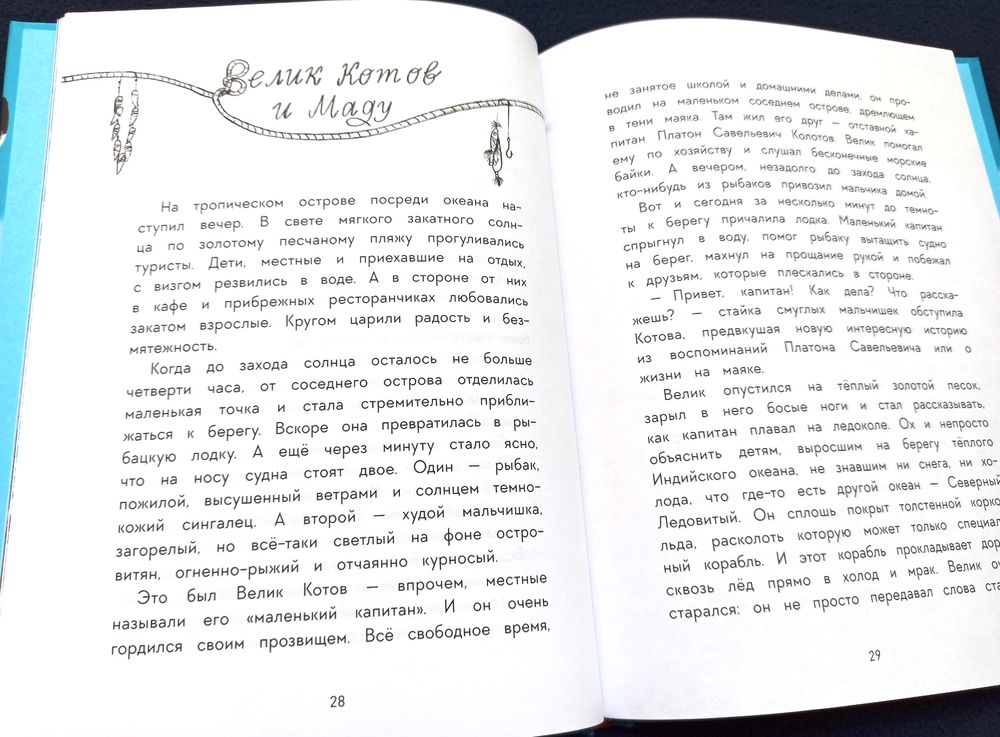 Велик Котов
и Маду
На тропическом острове посреди океана на-
ступил вечер. В свете мягкого закатного солн-
ца по золотому песчаному пляжу прогуливались
туристы. Дети, местные и приехавшие на отдых,
с визгом резвились в воде. А в стороне от них
в кафе и прибрежных ресторанчиках любовались
закатом взрослые. Кругом царили радость и без-
мятежность.
Когда до захода солнца осталось не больше
четверти часа, от соседнего острова отделилась
маленькая точка и стала стремительно прибли-
жаться к берегу. Вскоре она превратилась в ры-
бацкую лодку. А ещё через минуту стало ясно,
что на носу судна стоят двое. Один – рыбак,
пожилой, высушенный ветрами и солнцем темно-
кожий сингалец. А второй – худой мальчишка,
загорелый, но всё-таки светлый на фоне остро-
витян, огненно-рыжий и отчаянно курносый.
Это был Велик Котов – впрочем, местные
называли его «маленький капитан». И он очень
гордился своим прозвищем. Всё свободное время,
28
не занятое школой и домашними делами, он про-
водил на маленьком соседнем острове, дремлющем
в тени маяка. Там жил его друг – отставной ка-
питан Платон Савельевич Колотов. Велик помогал
ему по хозяйству и слушал бесконечные морские
байки. А вечером, незадолго до захода солнца,
кто-нибудь из рыбаков привозил мальчика домой.
Вот и сегодня за несколько минут до темно-
ты к берегу причалила лодка. Маленький капитан
спрыгнул в воду, помог рыбаку вытащить судно
на берег, махнул на прощание рукой и побежал
к друзьям, которые плескались в стороне.
– Привет, капитан! Как дела? Что расска-
жешь? – стайка смуглых мальчишек обступила
Котова, предвкушая новую интересную историю
из воспоминаний Платона Савельевича или о
жизни на маяке.
Велик опустился на тёплый золотой песок,
зарыл в него босые ноги и стал рассказывать,
как капитан плавал на ледоколе. Ох и непросто
объяснить детям, выросшим на берегу тёплого
Индийского океана, не знавшим ни снега, ни хо-
лода, что где-то есть другой океан – Северный
Ледовитый. Он сплошь покрыт толстенной корко
льда, расколоть которую может только специал
ный корабль. И этот корабль прокладывает дор
сквозь лёд прямо в холод и мрак. Велик оч
старался: он не просто передавал слова ста
29